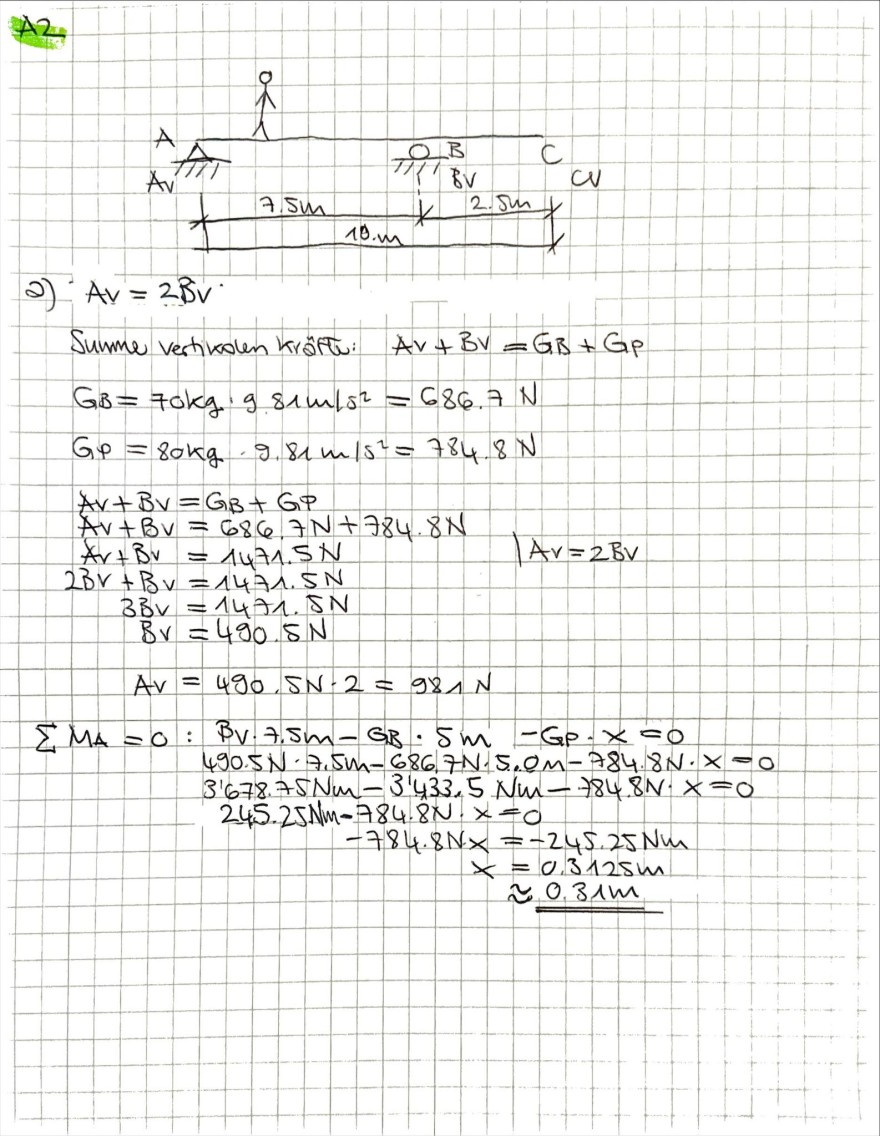 A2
A
B
C
Av
Bv
Cv
7.5m
2.5m
10.m
a) Av = 2Bv
Summe vertikalen Kräfte: Av + Bv = GB + GP
GB = 70kg · 9.81m/s² = 686.7 N
GP = 80kg · 9.81m/s² = 784.8 N
Av + Bv = GB + GP
Av + Bv = 686.7N + 784.8N
Av + Bv = 1471.5N | Av = 2Bv
2Bv + Bv = 1471.5N
3Bv = 1471.5N
Bv = 490.5N
Av = 490.5N · 2 = 981N
∑ MA = 0 : Bv · 7.5m - GB · 5m - GP · x = 0
490.5N · 7.5m - 686.7N · 5.0m - 784.8N · x = 0
3'678.75Nm - 3'433.5 Nm - 784.8N · x = 0
245.25Nm - 784.8N · x = 0
-784.8Nx = -245.25Nm
x = 0.3125m
≈ 0.31m